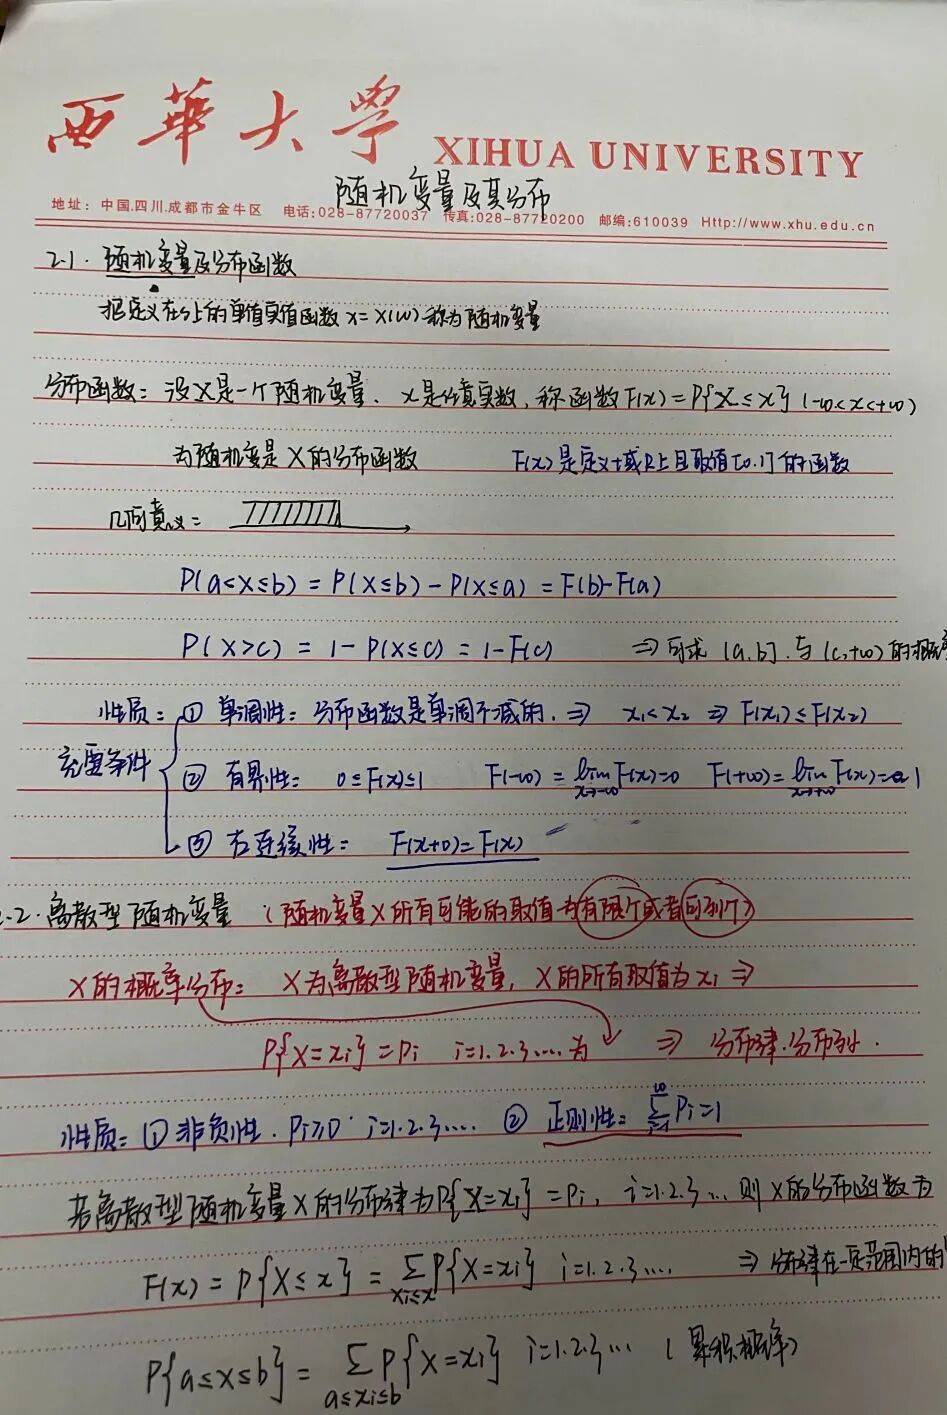 西華大学 XIHUA UNIVERSITY
随机变量及其分布
地址：中国.四川.成都市金牛区 电话:028-87720037 传真:028-87720200 邮编:610039 Http://www.xhu.edu.cn
2.1. 随机变量及分布函数
把定义在S上的单值实值函数 x=X(w) 称为随机变量
分布函数：设X是一个随机变量、x是任意实数，称函数F(x)=P{X≤x} (-∞<x<+∞)
为随机变是X的分布函数 F(x)是定义域R上且取值[0.1]的函数
几何意义：
P(a<X≤b) = P(X≤b) - P(X≤a) = F(b)-F(a)
P(X>c) = 1-P(X≤c) = 1-F(c) ⇒ 可求 (a,b]. 与 (c,+∞) 的概率
性质：① 单调性：分布函数是单调不减的. ⇒ x₁<x₂ ⇒ F(x₁)≤F(x₂)
充要条件 ② 有界性： 0≤F(x)≤1 F(-∞) = lim x→-∞ F(x)=0 F(+∞)= lim x→+∞ F(x)=1
③ 右连续性： F(x+0)=F(x)
2.2.离散型随机变量 (随机变量X所有可能的取值为有限个或者可列个)
X的概率分布： X为离散型随机变量，X的所有取值为xi ⇒
P{X=xi}=Pi i=1.2.3.... 为 ⇒ 分布律.分布列.
性质：① 非负性. Pi≥0 i=1.2.3.... ② 正则性： ∞∑i=1 Pi=1
若离散型随机变量X的分布律为P{X=xi}=Pi, i=1.2.3... 则X的分布函数为
F(x) = P{X≤x} = ∑xi≤x P{X=xi} i=1.2.3.... ⇒ 分布律在一定范围内的
P{a≤x≤b} = ∑a≤xi≤b P{X=xi} i=1.2.3... (累积概率)